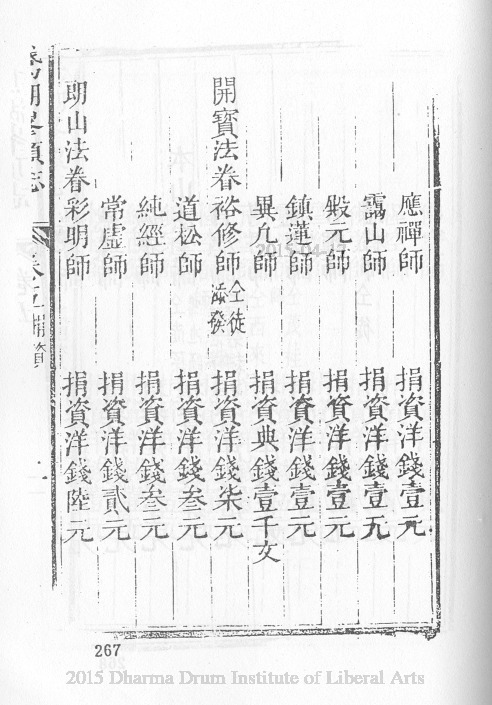 應禪師 捐資洋錢壹元
靄山師 捐資洋錢壹元
殿元師 捐資洋錢壹元
鎮蓮師 捐資洋錢壹元
異凢師 捐資典錢壹千文
開寶法眷裕修師 仝徒添發 捐資洋錢柒元
道松師 捐資洋錢叁元
純經師 捐資洋錢叁元
常虛師 捐資洋錢貳元
玥山法眷彩明師 捐資洋錢陸元
卷五 捐資
267
2015 Dharma Drum Institute of Liberal Arts